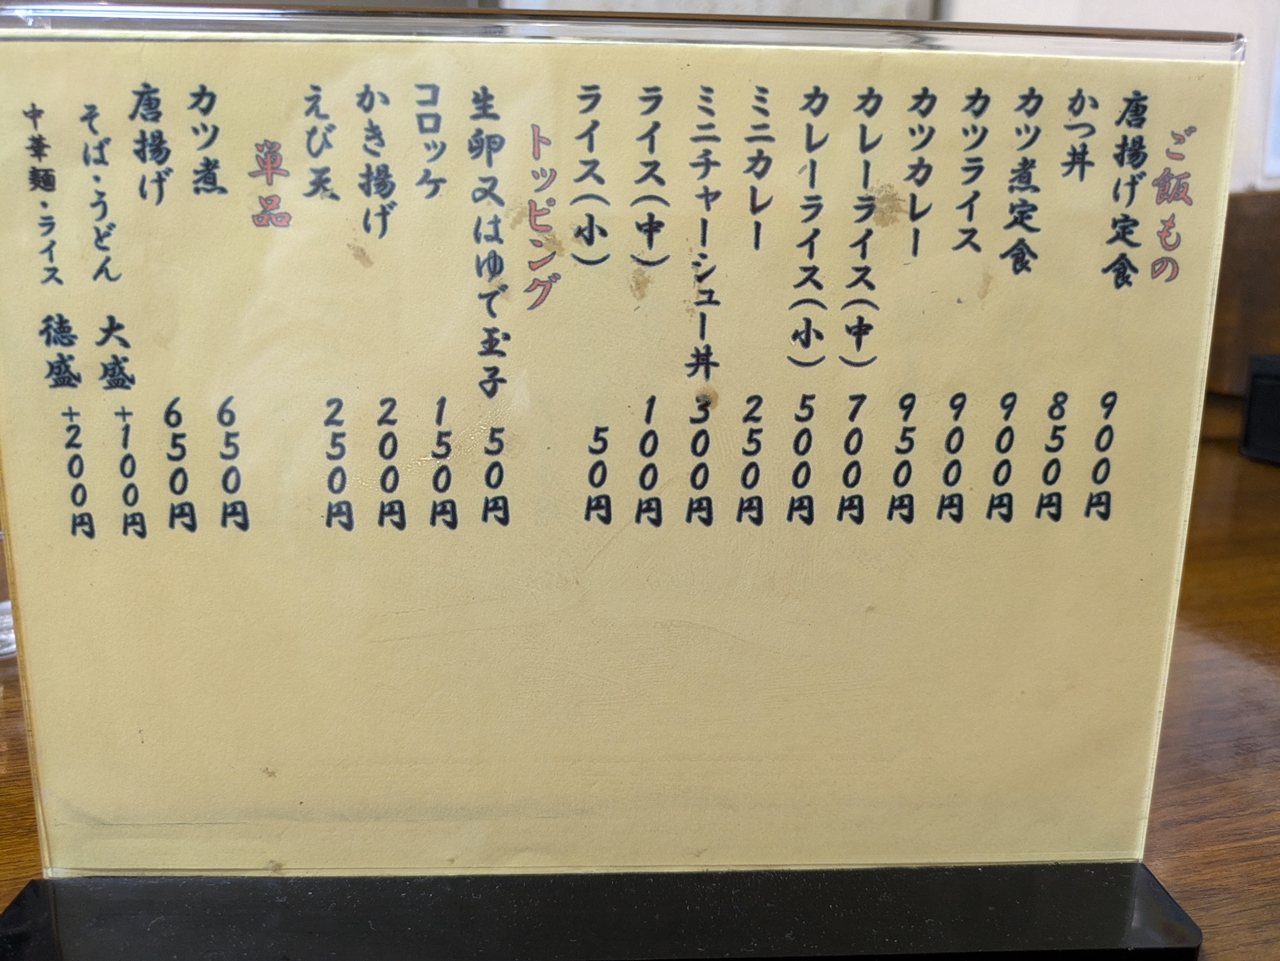 ご飯もの
唐揚げ定食 900円
かつ丼 850円
カツ煮定食 900円
カツライス 900円
カツカレー 950円
カレーライス(中) 700円
カレーライス(小) 500円
ミニカレー 250円
ミニチャーシュー丼 300円
ライス(中) 100円
ライス(小) 50円
トッピング
生卵又はゆで玉子 50円
コロッケ 150円
かき揚げ 200円
えび天 250円
単品
カツ煮 650円
唐揚げ 650円
そば・うどん 大盛 +100円
中華麺・ライス 徳盛 +200円